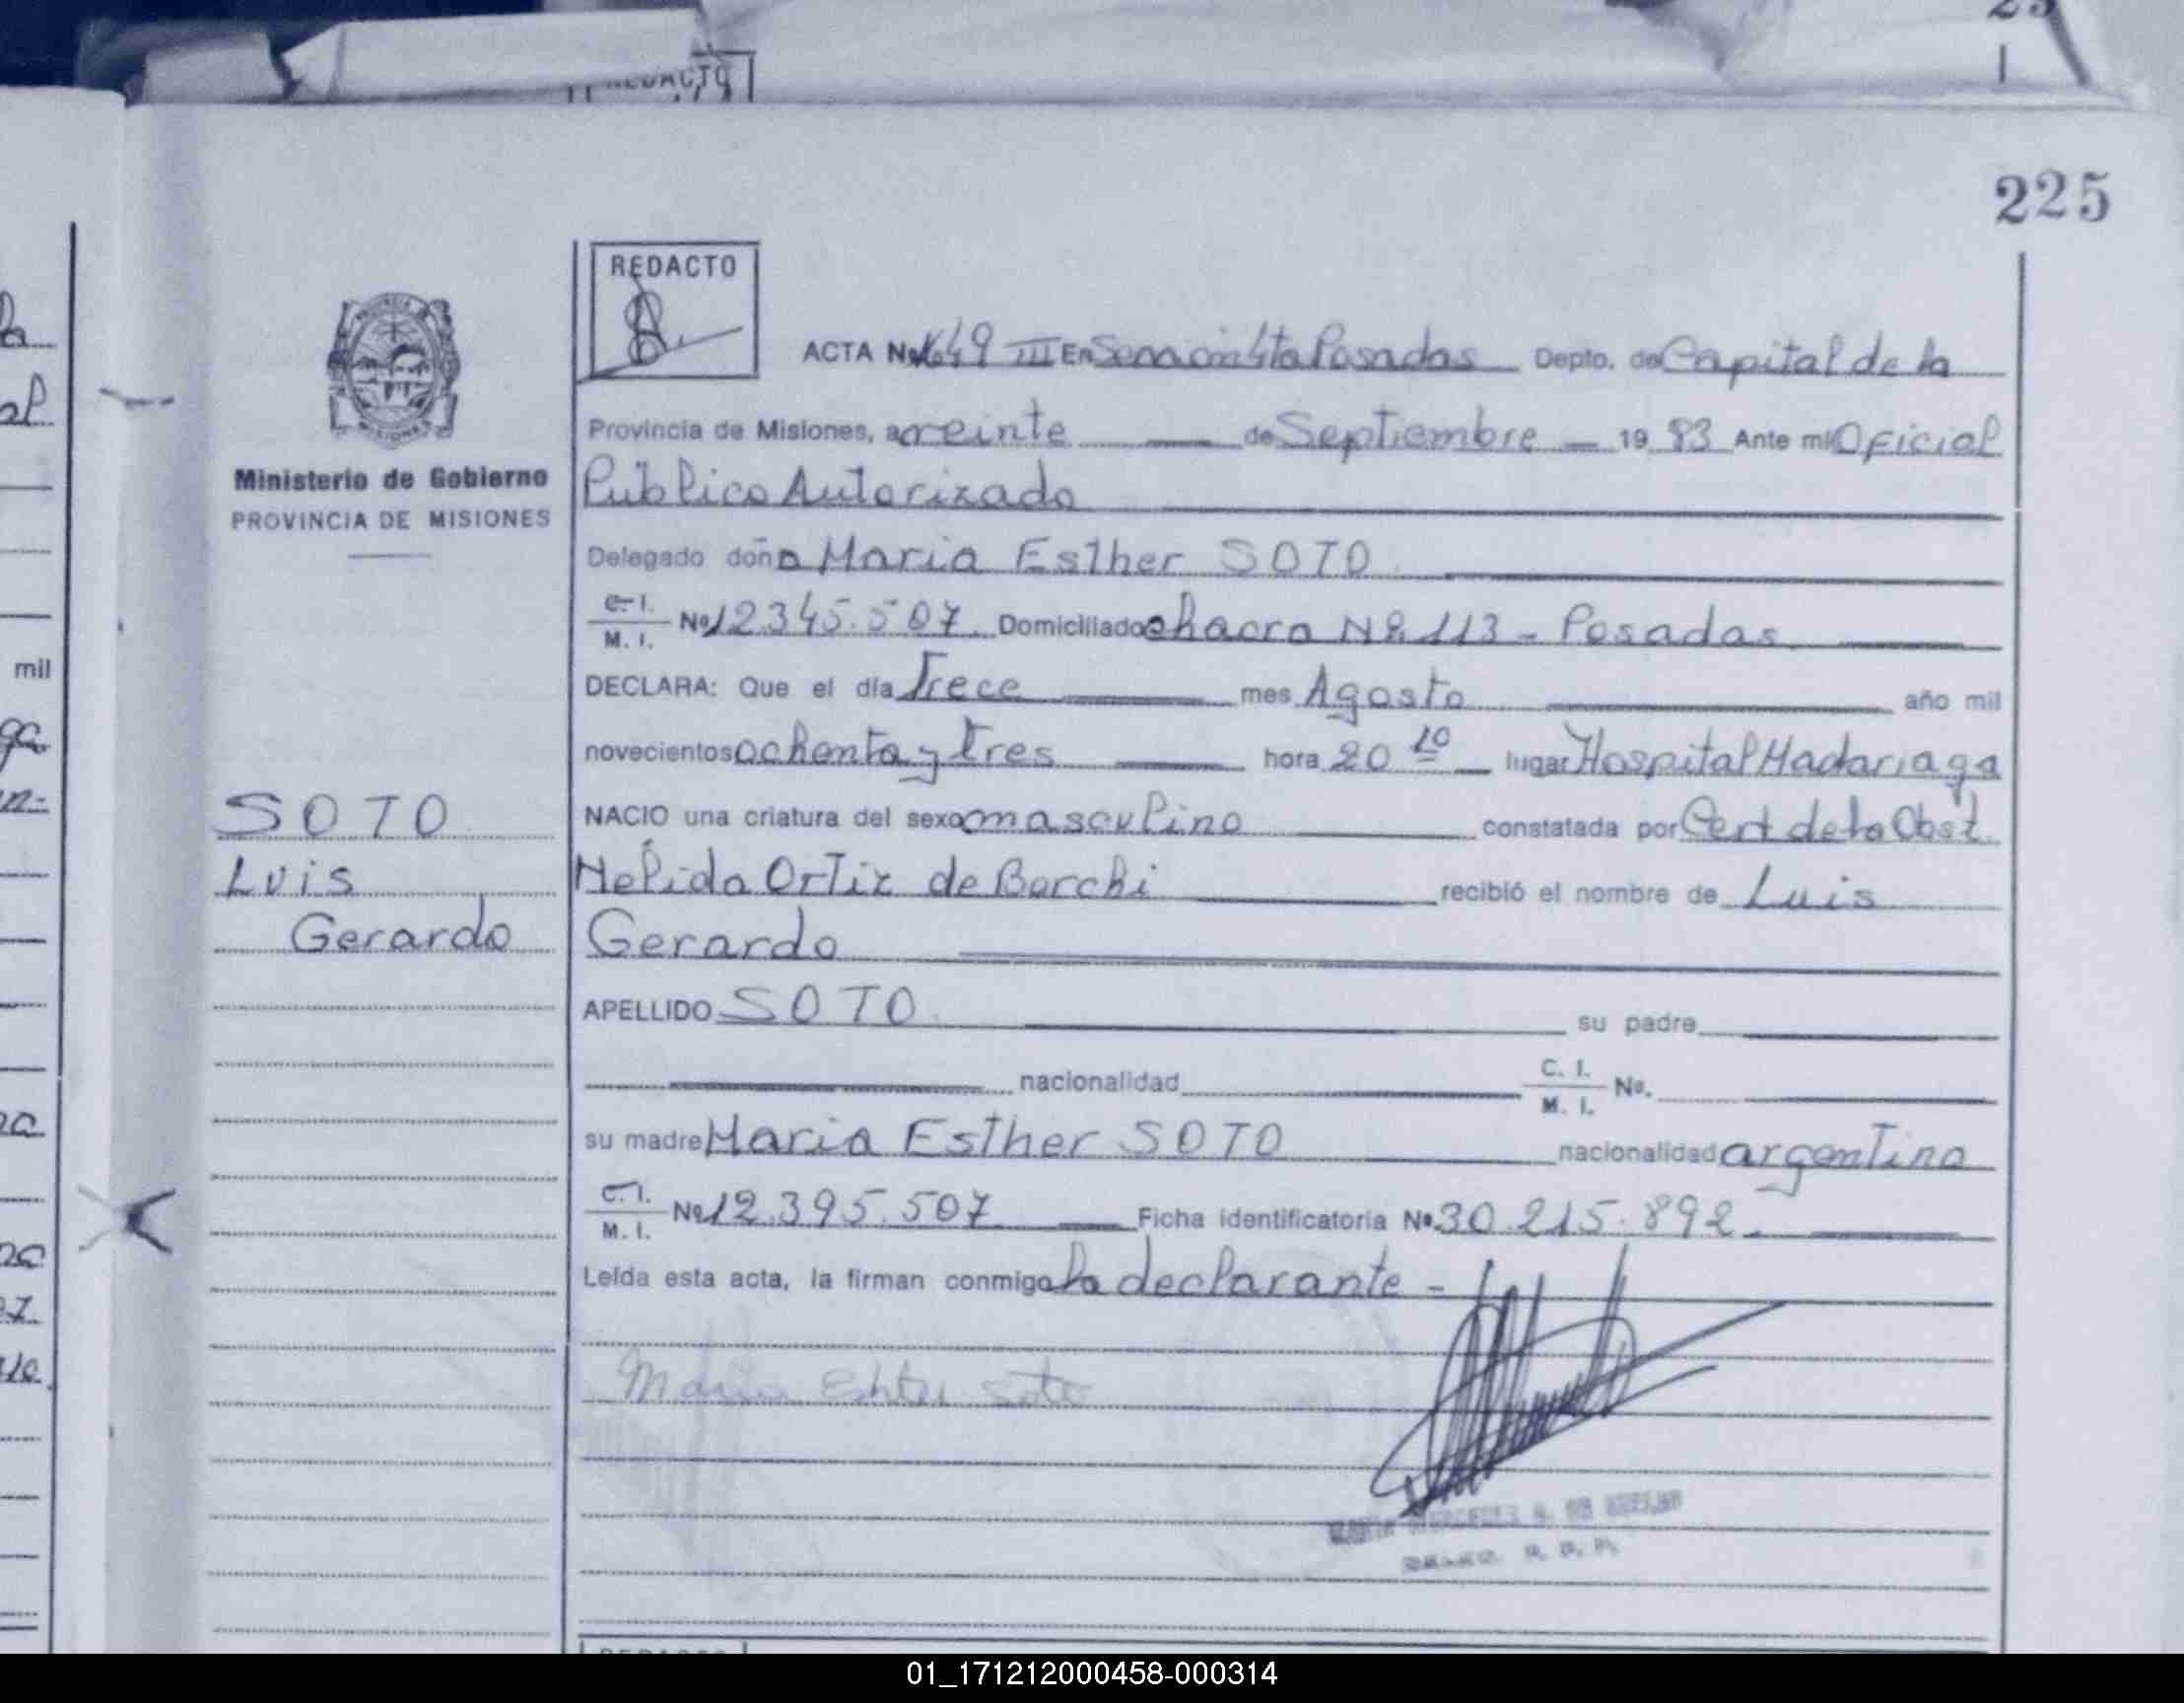 225
REDACTO
ACTA Nº 1649 III En Seccion 4ta Posadas Depto. de Capital de la
Provincia de Misiones, a veinte de Septiembre 19 83 Ante mi Oficial
Público Autorizado
Ministerio de Gobierno
PROVINCIA DE MISIONES
Delegado doña Maria Esther SOTO
C. I. / M. I. Nº 12.345.507. Domiciliado chacra Nº 113 - Posadas
DECLARA: Que el día Trece mes Agosto año mil
novecientos ochenta y tres hora 20 10 lugar Hospital Madariaga
NACIO una criatura del sexo masculino constatada por Cert de la Obst
Nelida Ortiz de Borchi recibió el nombre de Luis
Gerardo
APELLIDO SOTO su padre
nacionalidad C. I. / M. I. Nº.
su madre Maria Esther SOTO nacionalidad argentina
C. I. / M. I. Nº 12.395.507 Ficha identificatoria Nº 30.215.892.
Leída esta acta, la firman conmigo la declarante -
SOTO
Luis
Gerardo
Maria Eshter Soto
mil
01_171212000458-000314